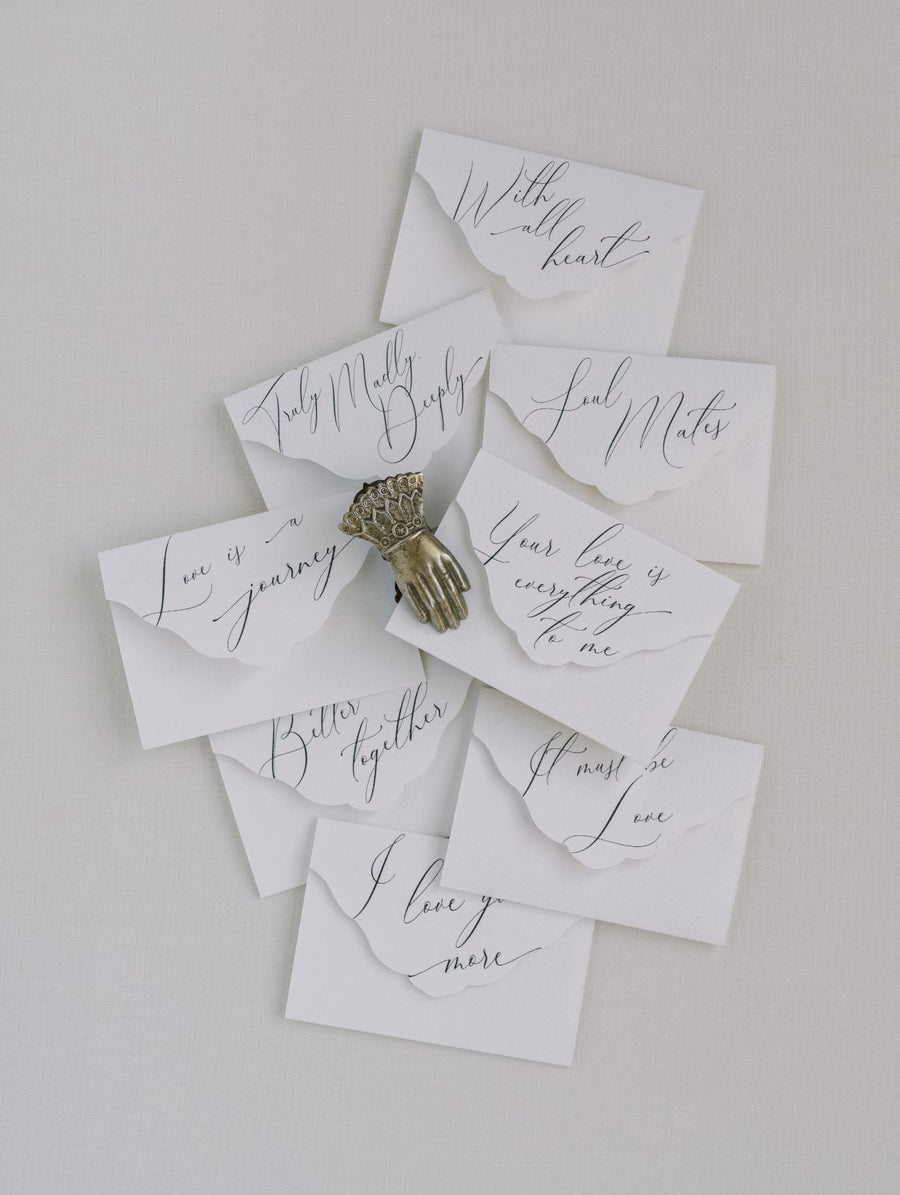 With
all
heart
Truly. Madly.
Deeply
Soul
Mates
Love is a
journey
Your love is
everything
to me
Better
together
It must be
Love
I love
more